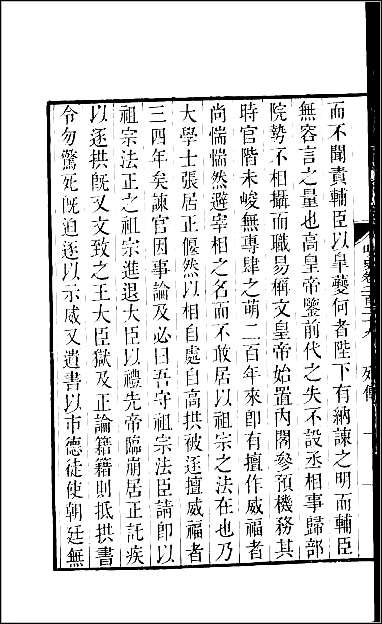 而不聞責輔臣以皋夔何者陛下有納諫之明而輔臣
無容言之量也高皇帝鑒前代之失不設丞相事歸部
院勢不相攝而職易稱文皇帝始置內閣參預機務其
時官階未峻無專肆之萌二百年來卽有擅作威福者
尚惴惴然避宰相之名而不敢居以祖宗之法在也乃
大學士張居正偃然以相自處自高拱被逐擅威福者
三四年矣諫官因事論及必曰吾守祖宗法臣請卽以
祖宗法正之祖宗進退大臣以禮先帝臨崩居正託疾
以逐拱旣又文致之王大臣獄及正論籍籍則抵拱書
令勿驚死旣迫逐以示威又遺書以市德徒使朝廷無